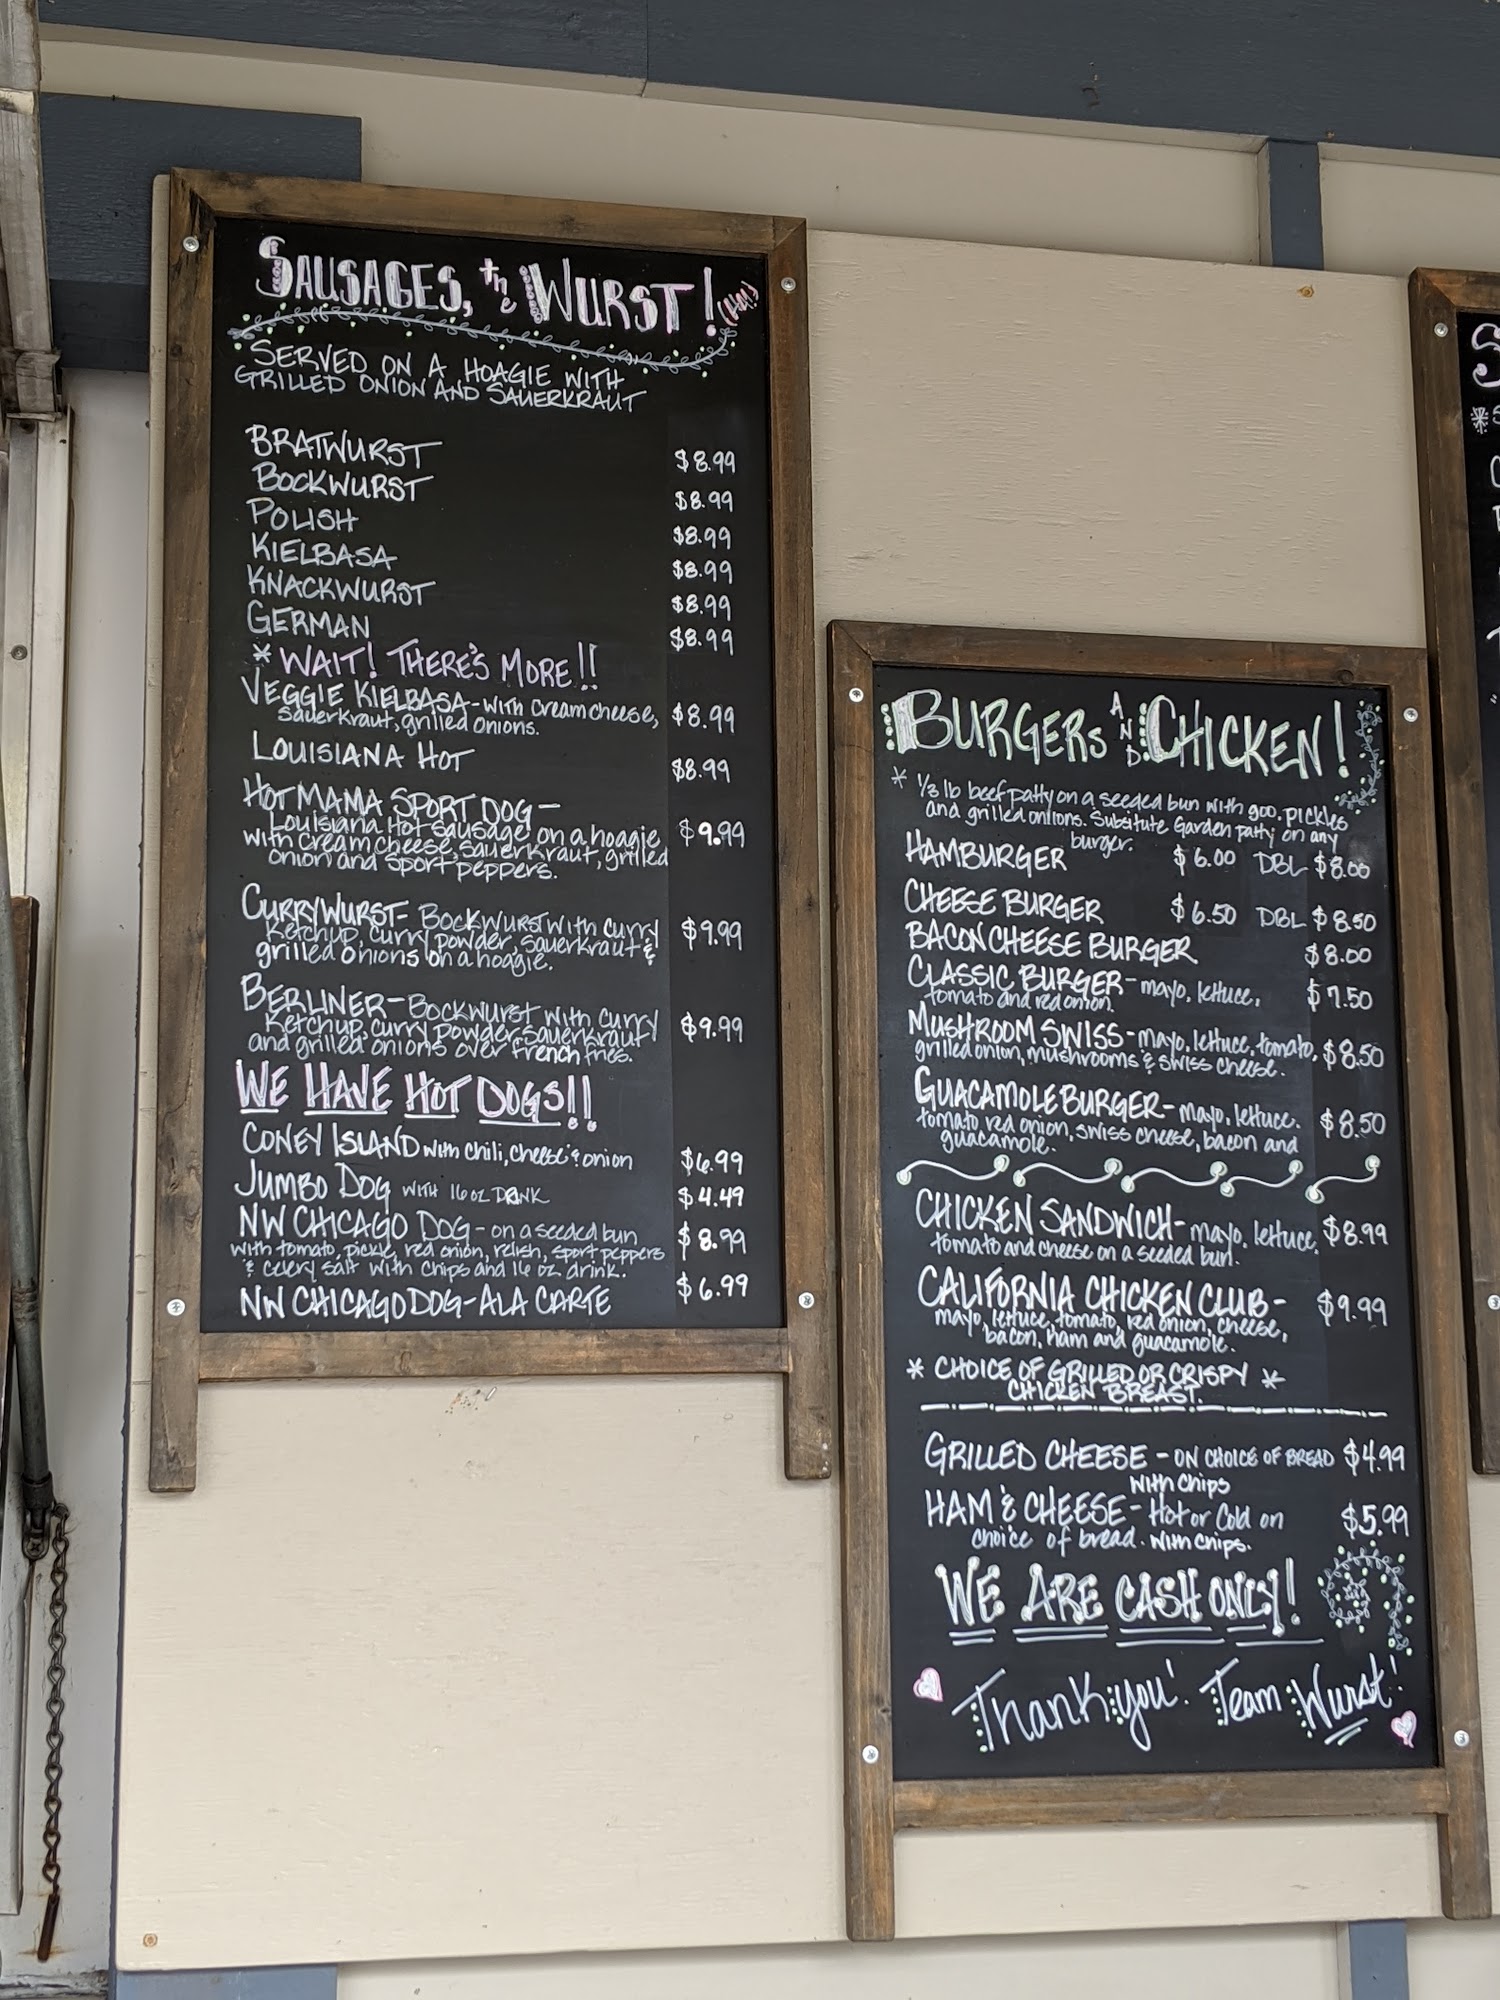 SAUSAGES, the WURST! (HA!)
SERVED ON A HOAGIE WITH
GRILLED ONION AND SAUERKRAUT
BRATWURST $8.99
BOCKWURST $8.99
POLISH $8.99
KIELBASA $8.99
KNACKWURST $8.99
GERMAN $8.99
* WAIT! THERE'S MORE!!
VEGGIE KIELBASA - with cream cheese, $8.99
sauerkraut, grilled onions.
LOUISIANA HOT $8.99
HOT MAMA SPORT DOG -
Louisiana Hot sausage on a hoagie $9.99
with cream cheese, sauerkraut, grilled
onion and sport peppers.
CURRYWURST - Bockwurst with curry $9.99
ketchup, curry powder, sauerkraut &
grilled onions on a hoagie.
BERLINER - Bockwurst with curry $9.99
ketchup, curry powder, sauerkraut
and grilled onions over french fries.
WE HAVE HOT DOGS!!
CONEY ISLAND with chili, cheese & onion $6.99
JUMBO DOG WITH 16 oz DRINK $4.49
NW CHICAGO DOG - on a seeded bun $8.99
with tomato, pickle, red onion, relish, sport peppers
& celery salt with chips and 16 oz drink.
NW CHICAGO DOG - ALA CARTE $6.99
BURGERS AND CHICKEN!
* 1/3 lb beef patty on a seeded bun with goo, pickles
and grilled onions. Substitute Garden patty on any
burger.
HAMBURGER $6.00 DBL $8.00
CHEESE BURGER $6.50 DBL $8.50
BACON CHEESE BURGER $8.00
CLASSIC BURGER - mayo, lettuce, $7.50
tomato and red onion.
MUSHROOM SWISS - mayo, lettuce, tomato, $8.50
grilled onion, mushrooms & swiss cheese.
GUACAMOLE BURGER - mayo, lettuce, $8.50
tomato, red onion, swiss cheese, bacon and
guacamole.
CHICKEN SANDWICH - mayo, lettuce, $8.99
tomato and cheese on a seeded bun.
CALIFORNIA CHICKEN CLUB - $9.99
mayo, lettuce, tomato, red onion, cheese,
bacon, ham and guacamole.
* CHOICE OF GRILLED OR CRISPY *
CHICKEN BREAST.
GRILLED CHEESE - ON CHOICE OF BREAD $4.99
with chips
HAM & CHEESE - Hot or Cold on $5.99
choice of bread. with chips.
WE ARE CASH ONLY!
Thank you! Team Wurst!